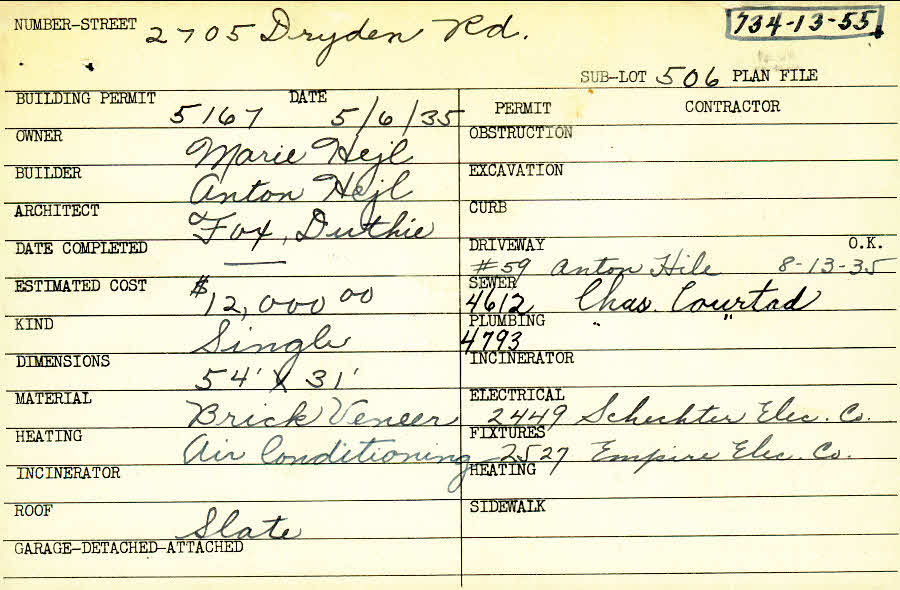 NUMBER-STREET 2705 Dryden Rd.
734-13-55
SUB-LOT 506 PLAN FILE
BUILDING PERMIT 5167 DATE 5/6/35
OWNER Marie Hejl
BUILDER Anton Hejl
ARCHITECT Fox, Duthie
DATE COMPLETED —
ESTIMATED COST $12,000 00
KIND Single
DIMENSIONS 54' X 31'
MATERIAL Brick Veneer
HEATING Air Conditioning
INCINERATOR
ROOF Slate
GARAGE-DETACHED-ATTACHED
PERMIT CONTRACTOR
OBSTRUCTION
EXCAVATION
CURB
DRIVEWAY O.K.
#59 Anton Hile 8-13-35
SEWER
4612 Chas. Courtad
PLUMBING
4793 " "
INCINERATOR
ELECTRICAL
2449 Schechter Elec. Co.
FIXTURES
2527 Empire Elec. Co.
HEATING
SIDEWALK